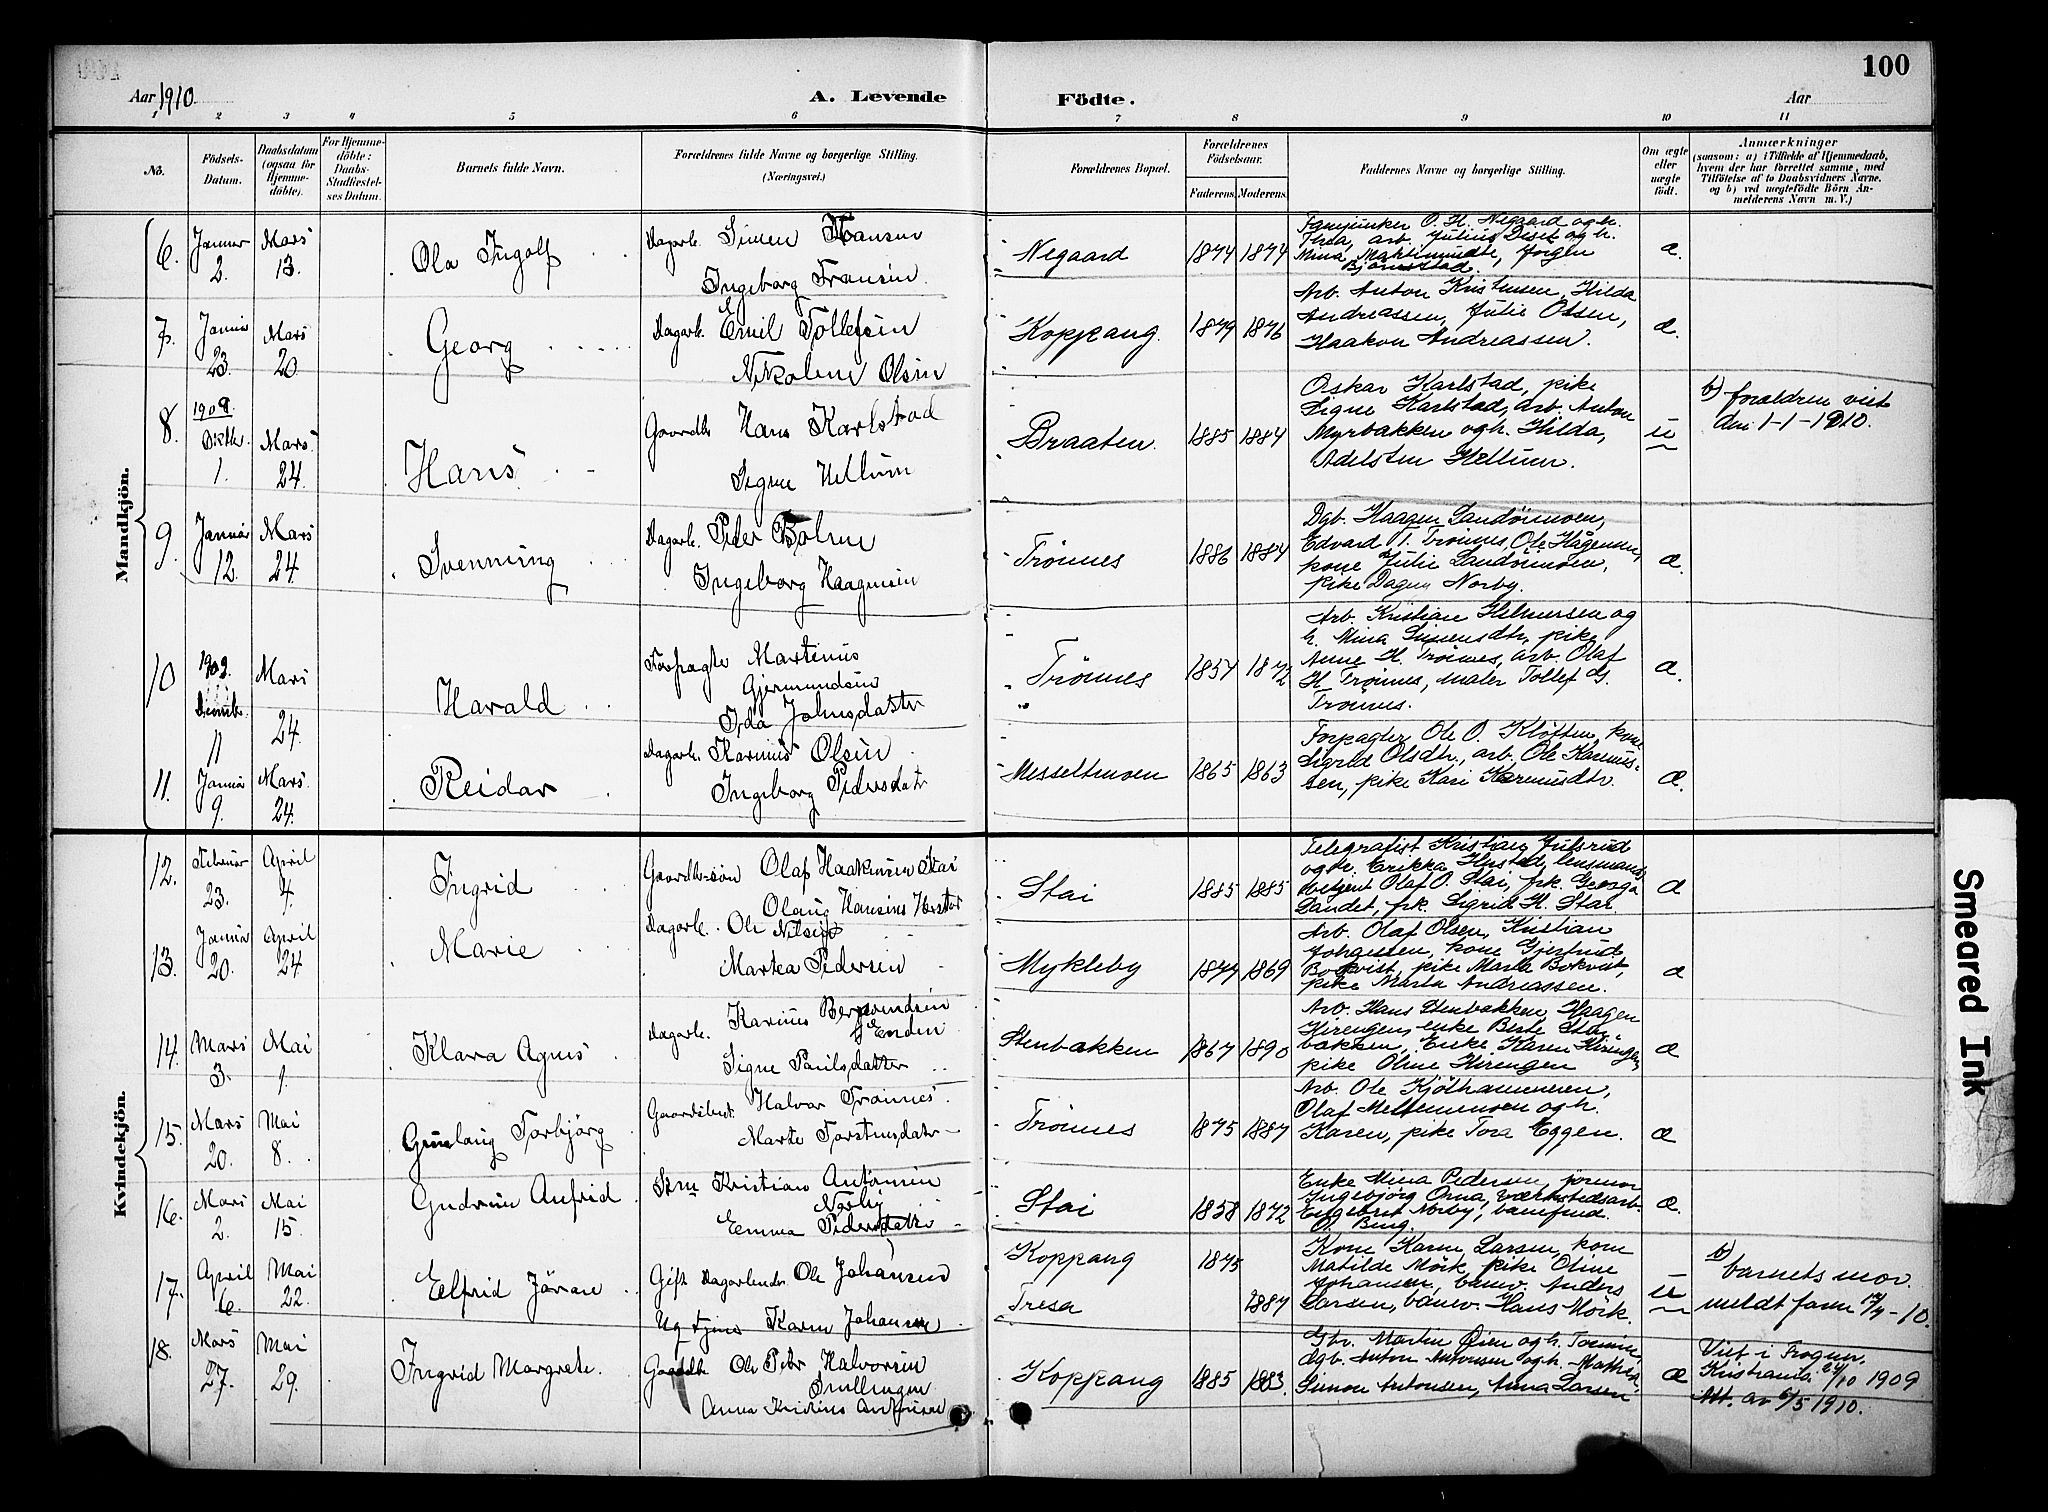 100
Aar 1910.
A. Levende Födte.
Aar
1 2 3 4 5 6 7 8 9 10 11
No.
Födsels-Datum.
Daabsdatum (ogsaa for Hjemmedöbte).
For Hjemmedöbte: Daabs-Stadfæstelses Datum.
Barnets fulde Navn.
Forældrenes fulde Navne og borgerlige Stilling. (Næringsvei.)
Forældrenes Bopæl.
Forældrenes Födselsaar.
Faderens. Moderens.
Faddernes Navne og borgerlige Stilling.
Om ægte eller uægte födt.
Anmærkninger
(saasom: a) i Tilfælde af Hjemmedaab, hvem der har forrettet samme, med Tilföielse af to Daabsvidners Navne, og b) ved uegtefödte Börn Anmelderens Navn m. V.)
Mandkjön.
6. Januar 2. Mars 13. Ola Ingolf Dagarb. Simen Hansen
Ingeborg Fransen
Negaard 1874 1874
Fanejunker O. H. Negaard og h.
Thea, arb. Julius Deset og h.
Mina Mahtimusdtr, Jörgen
Björnstad.
æ.
7. Januar 23. Mars 20. Georg Dagarb. Emil Tollefsen
Nikoline Olsen
Koppang. 1879 1876
Arb. Anton Kristensen, Hilda
Andreassen, Julie Olsen,
Haakon Andreassen.
æ.
8. 1909. Oktbr. 1. Mars 24. Hans Gaardbr Hans Karlstad
Signe Hellum
Braaten. 1885 1884
Oskar Karlstad, pike
Signe Karlstad, arb. Anton
Myrbakken og h. Hilda,
Adelsten Hellum.
u
b) foreldren viet
den 1-1-1910.
9. Januar 12. Mars 24 Svenning Dagarb. Peder Bolme
Ingeborg Haagensen
Trönnes 1886 1884
Dgb. Haagen Sandönmoen,
Edvard T. Trönnes, Ole Hågensen,
kone Julie Sandönmoen,
pike Dagny Norby.
æ.
10 1909. Decemb. 11 Mars 24. Harald Forpagter Martinus
Gjermundsen
Ida Johnsdatter
Trönnes 1857 1872
Arb. Kristian Helmersen og
h. Mina Simensdtr, pike
Anne H. Trönnes, arb. Olaf
H. Trönnes, maler Tollef G.
Trönnes.
æ.
11. Januar 9. Mars. 24. Reidar Dagarb. Karinus Olsen
Ingeborg Pedersdatr
Messeltmoen 1865 1863
Forpagter Ole O. Kløften, kone
Sigrid Olsdtr., arb. Ole Karinus-
sen, pike Kari Karinusdtr.
æ.
Kvindekjön.
12. Februar 23. April 4. Ingrid Gaardbr-sön Olaf Haakensen Stai
Olaug Hansine
Stai 1885 1885
Telegrafist Kristian Jufsrud
og h. Erikka Husted, lensmans
betjent Olaf O. Stai, frk. Georga
Sandet, frk. Sigrid H. Stai
æ
13. Januar 20. April 24 Marie Dagarb. Ole Nilsen
Martea Pedersen
Mykleby 1877 1869
Arb. Olaf Olsen, Kristian
Johansen, kone Gjertrude
Bokvist, pike Marta Bokvist,
pike Marta Andreassen.
æ
14. Mars 3. Mai 1. Klara Agnes Dagarb. Karinus Bersvendsen
Enden
Signe Paulsdatter
Stenbakken 1867 1890
Arb. Hans Stenbakken, Haagen
Hirengen, enke Berte Sten-
bakken, Enke Karen Hirengen,
pike Oline Hirengen
æ
15. Mars 20. Mai 8. Gunlaug Torbjörg Gaardsbest. Halvor Trönnes
Marte Torstensdatr
Trönnes 1875 1887
Arb. Ole Kjölhammeren,
Olaf Meltenmoen og h.
Karen, pike Tora Eggen.
æ
16. Mars 2. Mai 15. Gudrun Anfrid Kristian Antonsen
Norby
Emma Pedersdatr
Stai 1858 1872
Enke Mina Pedersen, jormor
Ingebjörg Orna, værkstedsarb.
Engebret Norby, banefmd.
O. Berg.
æ.
17. April 6. Mai 22. Elfrid Jöran Gift Dagarbeider Ole Johansen
Ug tjene Karen Johansen
Koppang 1875
Tresa 1887
Kone Karen Larsen, kone
Matilde Mörk, pike Oline
Johansen, banev. Anders
Larsen, banev. Hans Mörk.
u
b) barnets mor.
meldt fam 12/4-10.
18. Mars 27. Mai 29. Ingrid Margrete. Gaardbr Ole Petr Halvorsen
Snellingen
Anna Kristine Antonsen
Koppang 1885 1883.
Gbr. Martin Öien og h. Tomine,
dgb. Anton Antonsen og h. Mathild,
Simon Antonsen, Anna Larsen
æ
Viet i Frogner,
Kristiania 24/10 1909
Att. av 6/5 1910.
Smeared Ink